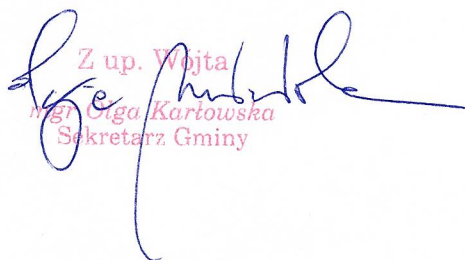 Z up. Wójta
mgr Olga Karłowska
Sekretarz Gminy